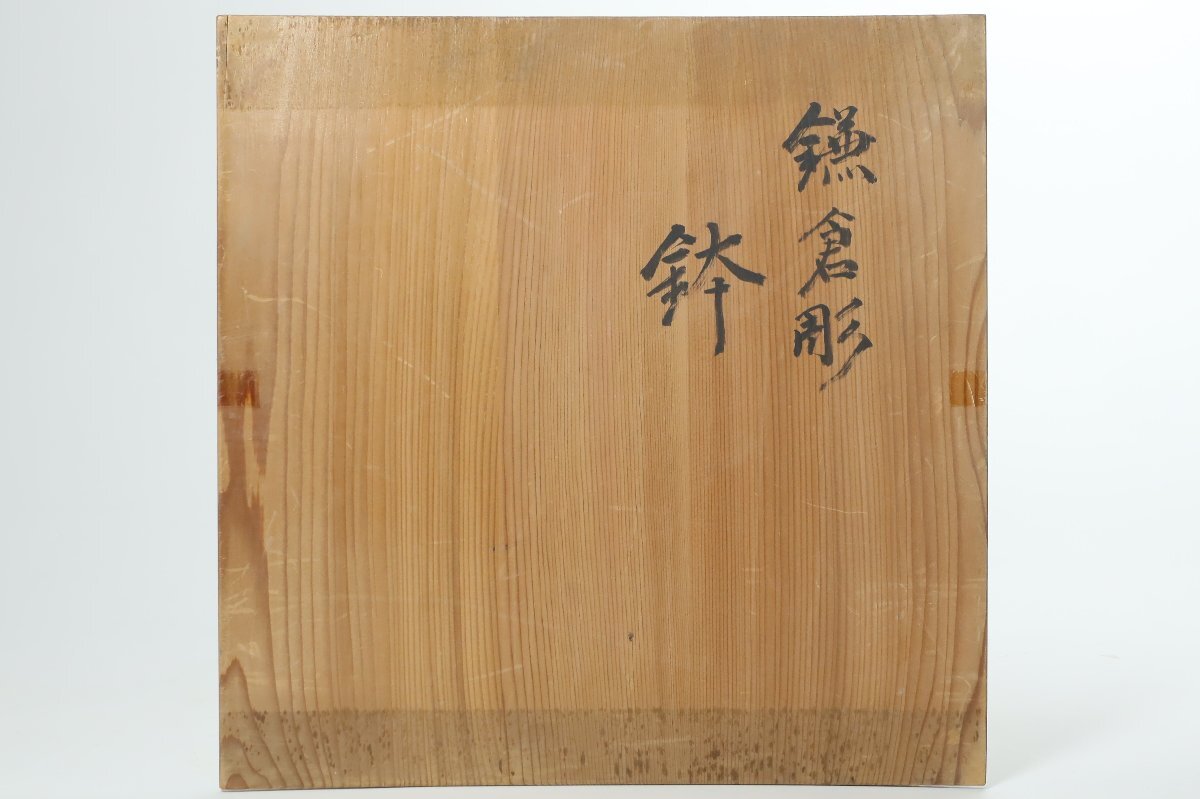 鎌倉彫
鉢